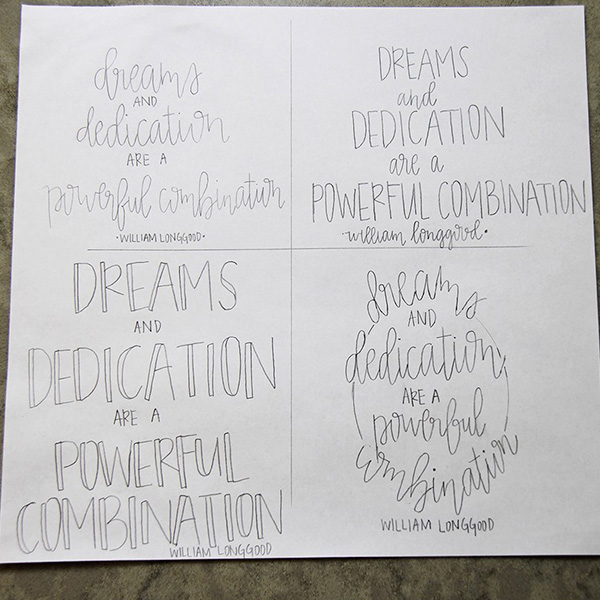 dreams
AND
dedication
ARE A
powerful combination
·WILLIAM LONGGOOD·
DREAMS
and
DEDICATION
are a
POWERFUL COMBINATION
·william longgood·
DREAMS
AND
DEDICATION
ARE A
POWERFUL
COMBINATION
WILLIAM LONGGOOD
dreams
AND
dedication
ARE A
powerful
combination
WILLIAM LONGGOOD